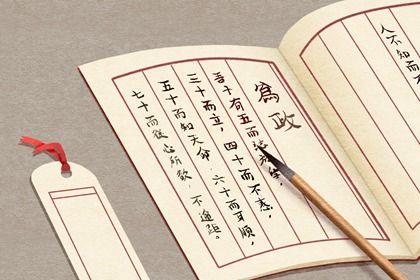 人不知而
為政
吾十有五而
三十而立，四十而不惑，
五十而知天命，六十而耳順，
七十而從心所欲，不逾距。